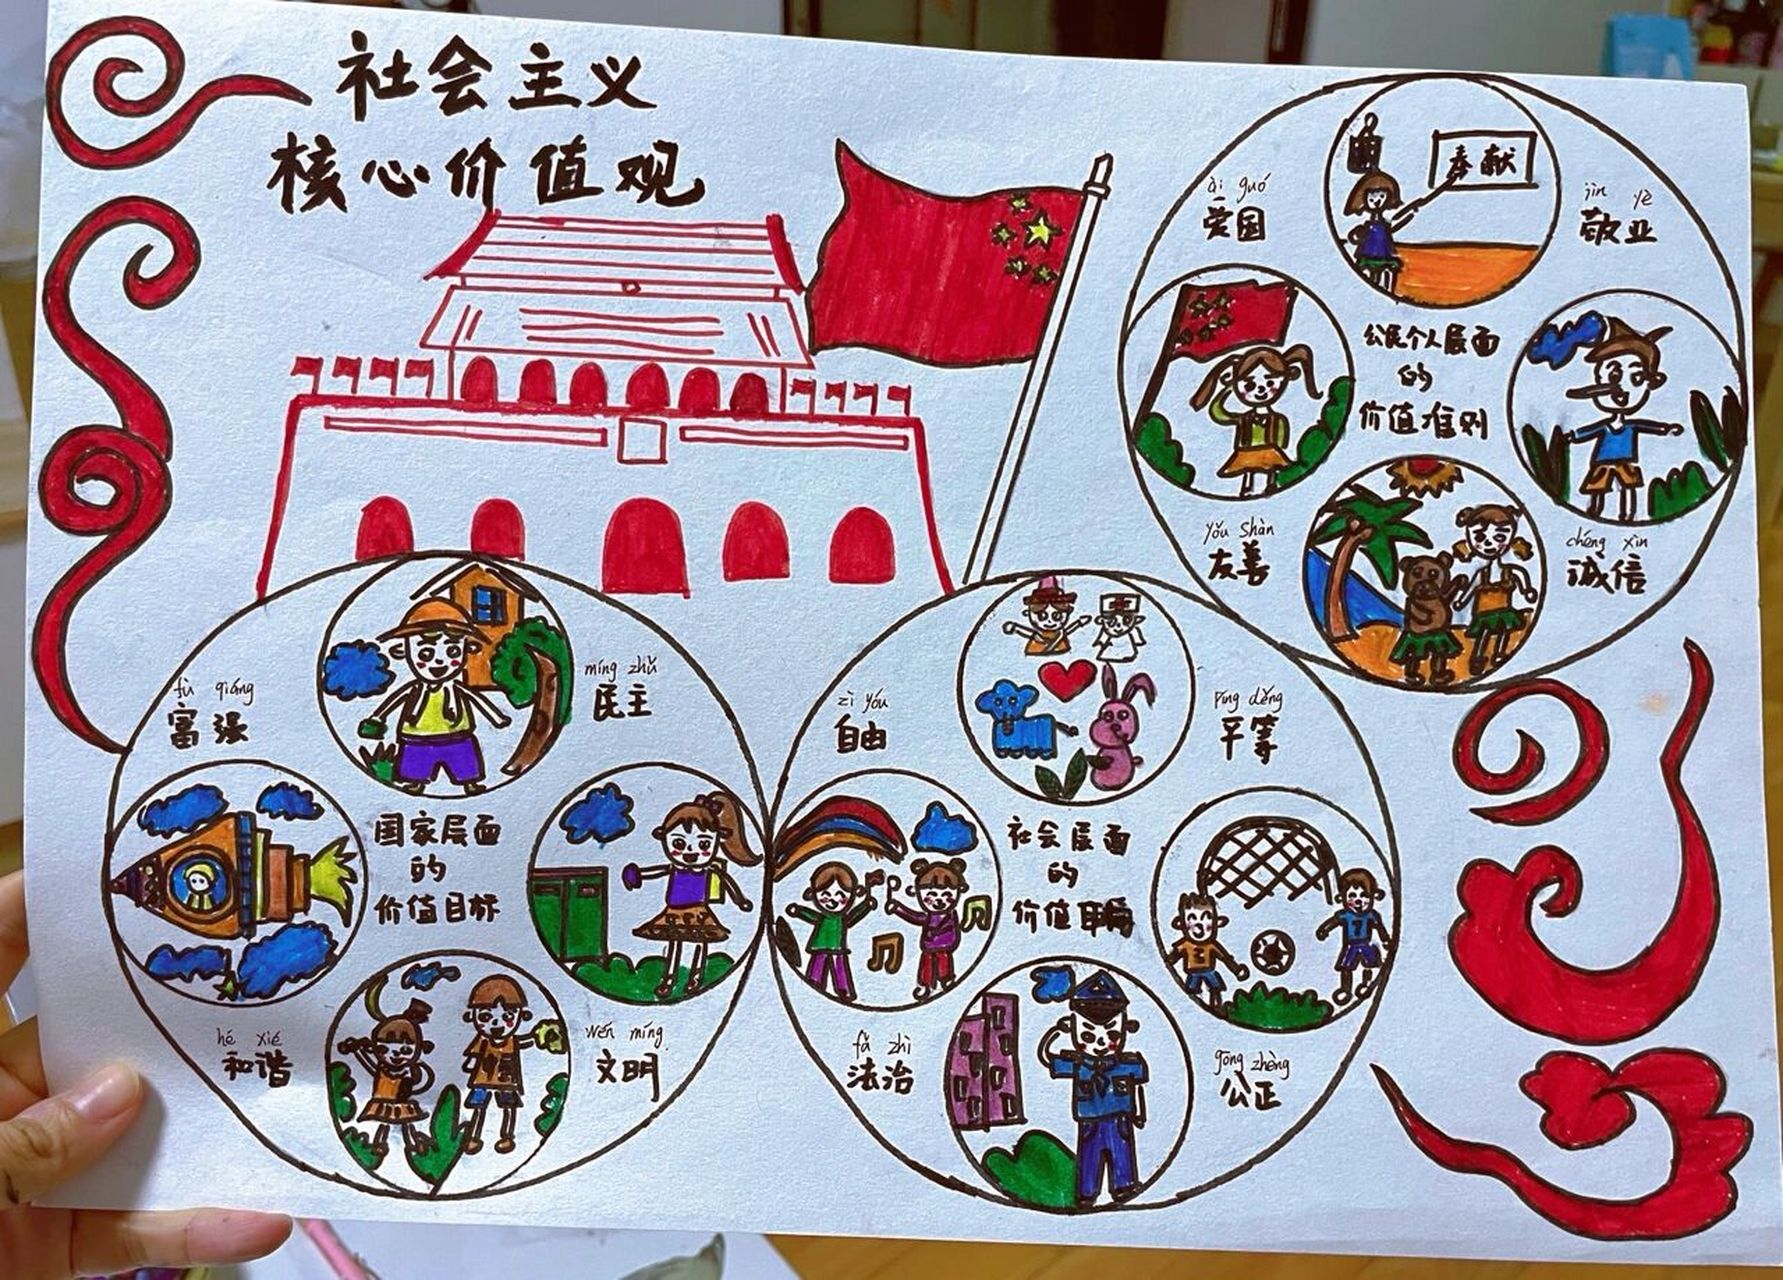 社会主义
核心价值观
奉献
ài guó
爱国
jìn yè
敬业
公民个人层面
的
价值准则
yǒu shàn
友善
chéng xìn
诚信
fù qiáng
富强
míng zhǔ
民主
国家层面
的
价值目标
hé xié
和谐
wén míng
文明
zì yóu
自由
píng děng
平等
社会层面
的
价值
fǎ zhì
法治
gōng zhèng
公正